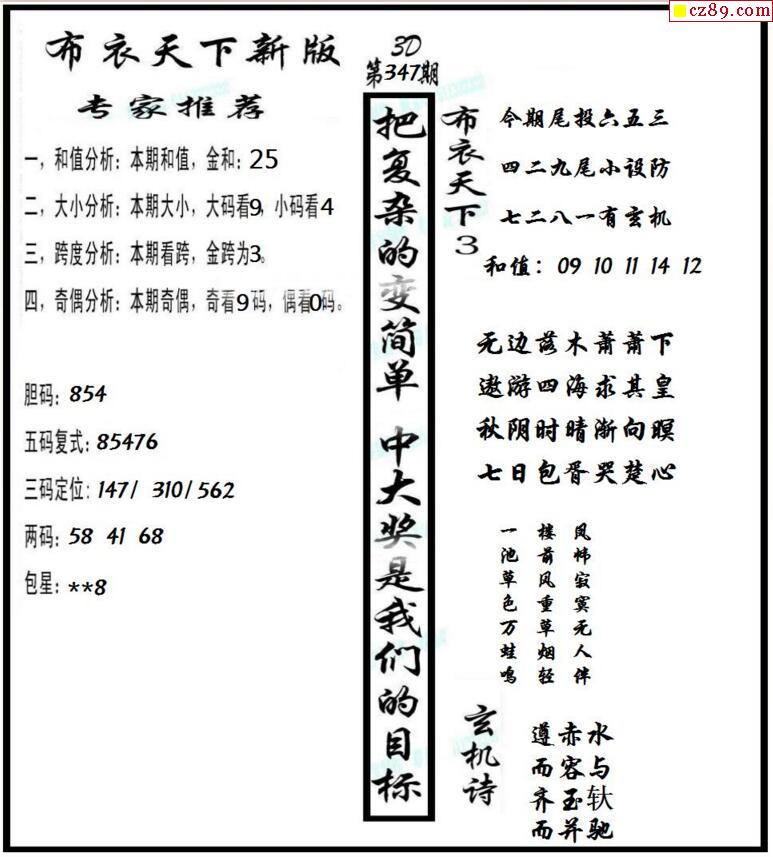 cz89.com
布衣天下新版
专家推荐
一，和值分析：本期和值，金和：25
二，大小分析：本期大小，大码看9，小码看4
三，跨度分析：本期看跨，金跨为3。
四，奇偶分析：本期奇偶，奇看9码，偶看0码。
胆码：854
五码复式：85476
三码定位：147/ 310/562
两码：58 41 68
包星：**8
3D
第347期
把复杂的变简单 中大奖是我们的目标
布衣天下3
今期尾投六五三
四二九尾小设防
七二八一有玄机
和值：09 10 11 14 12
无边落木萧萧下
遨游四海求其皇
秋阴时晴渐向暝
七日包胥哭楚心
一池草色万蛙鸣
楼前风重草烟轻
凤帏寂寞无人伴
玄机诗
遵赤水
而容与
齐玉轪
而并驰